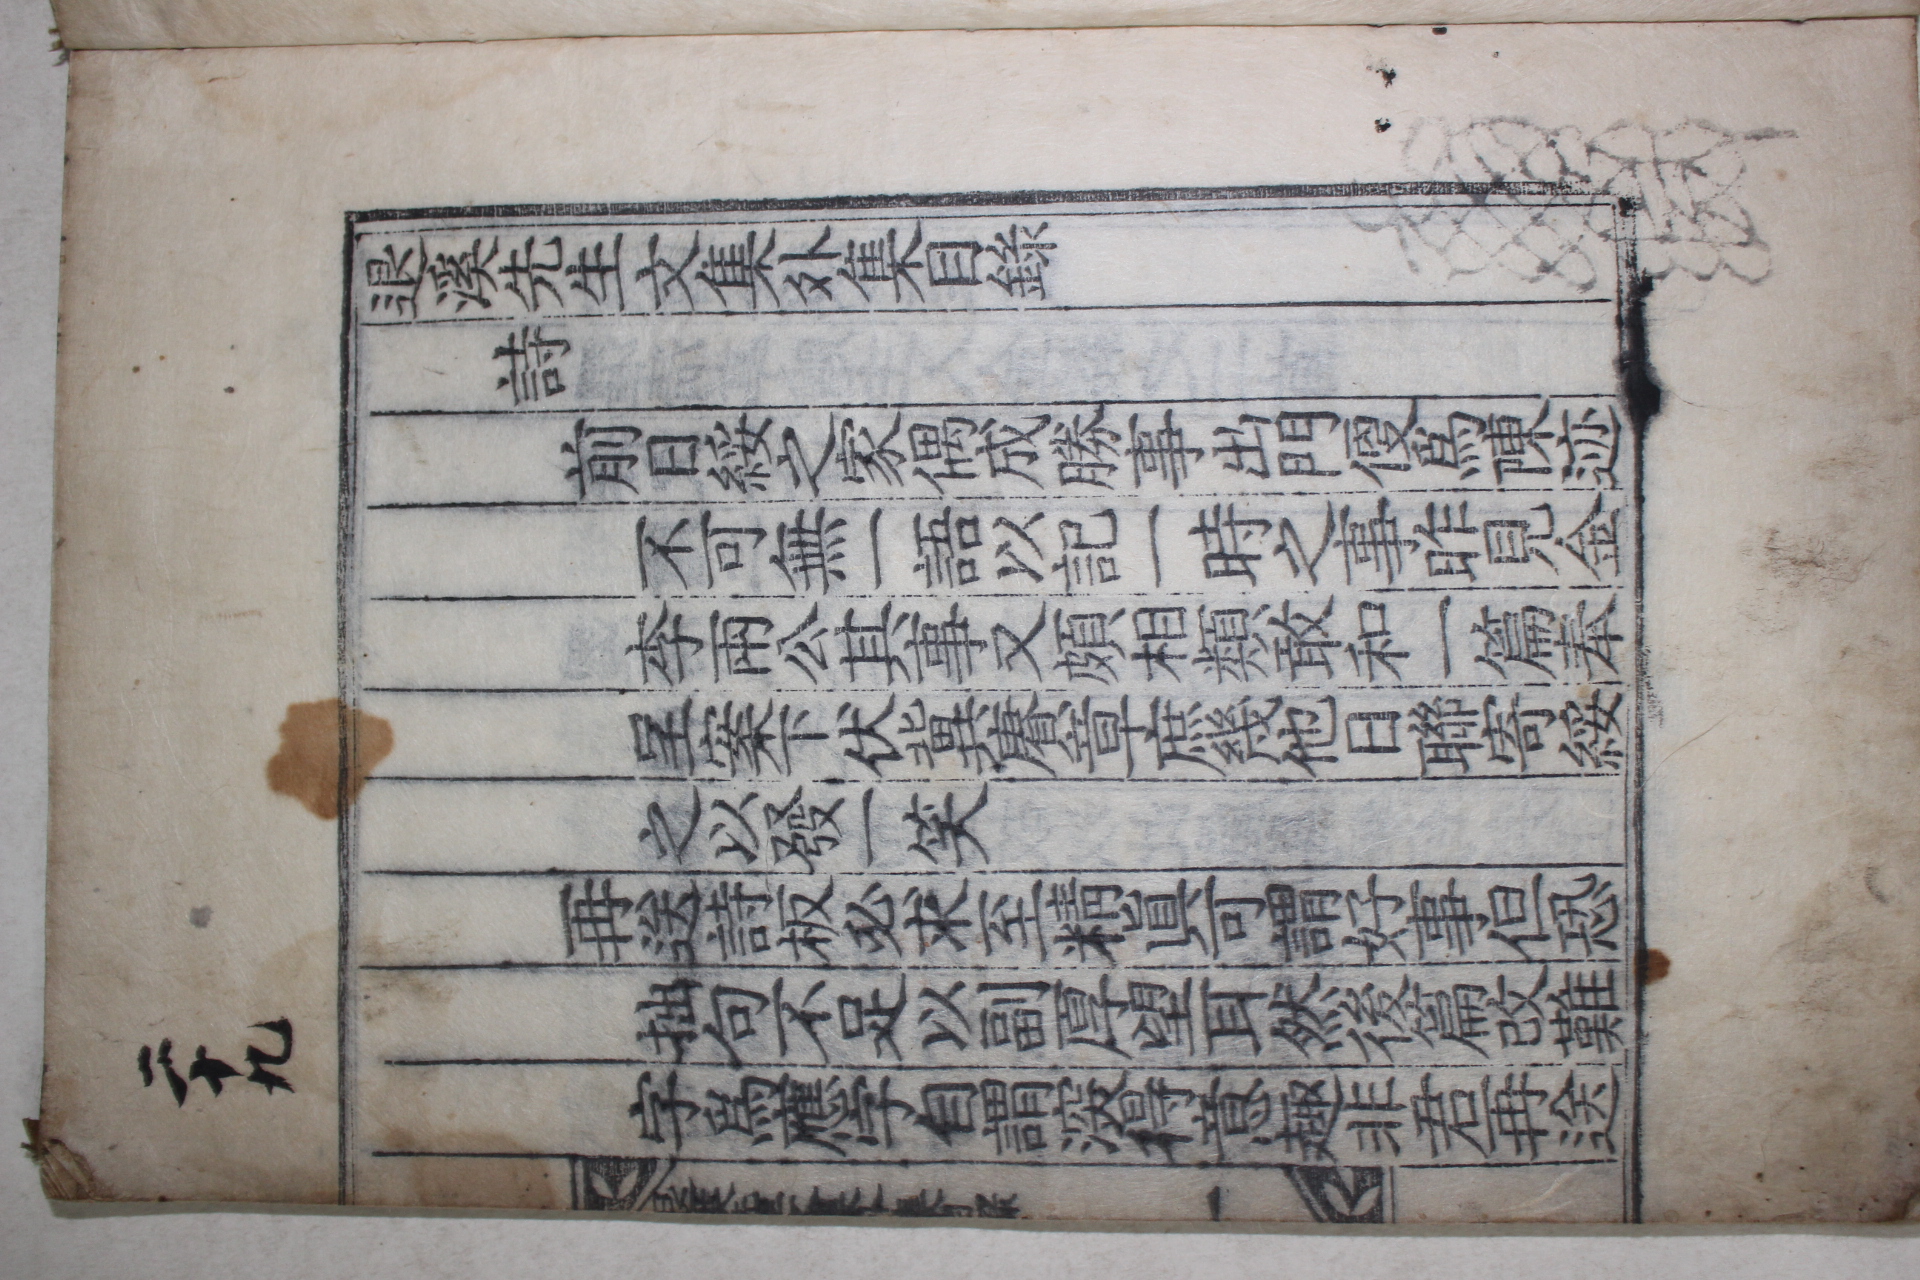 二十九
退溪先生文集外集目錄
詩
前日綏之家偶成勝事出門便爲陳迹
不可無一語以記一時之事昨見金
李兩公其事又頗相類敢和一篇奉
呈案下伏冀賡章庶幾他日聯寄綏
之以發一笑
再送詩板必求至精眞可謂好事但恐
拙句不足以副厚望耳然後篇改難
字爲應字自謂深得意趣非君再送
一